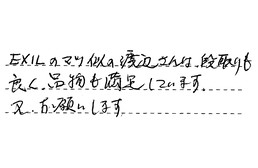 EXILのマツ似の渡辺さんは、段取りも
良く、品物も満足しています。
又、お願いします。